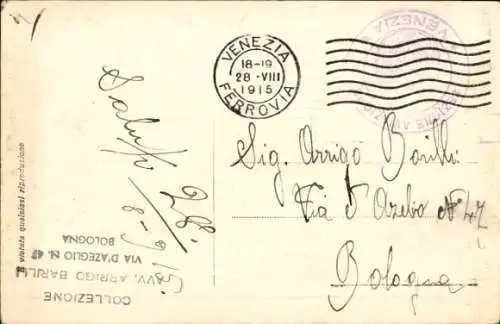 VENEZIA
18-19
28·VIII
1915
FERROVIA
VENEZIA
Sig. Arrigo Barilli
Via d'Azelio N° 47
Bologna
Saluti 28.
8-915
vietata qualsiasi riproduzione
COLLEZIONE
CAV. ARRIGO BARILLI
VIA D'AZEGLIO N. 47
BOLOGNA